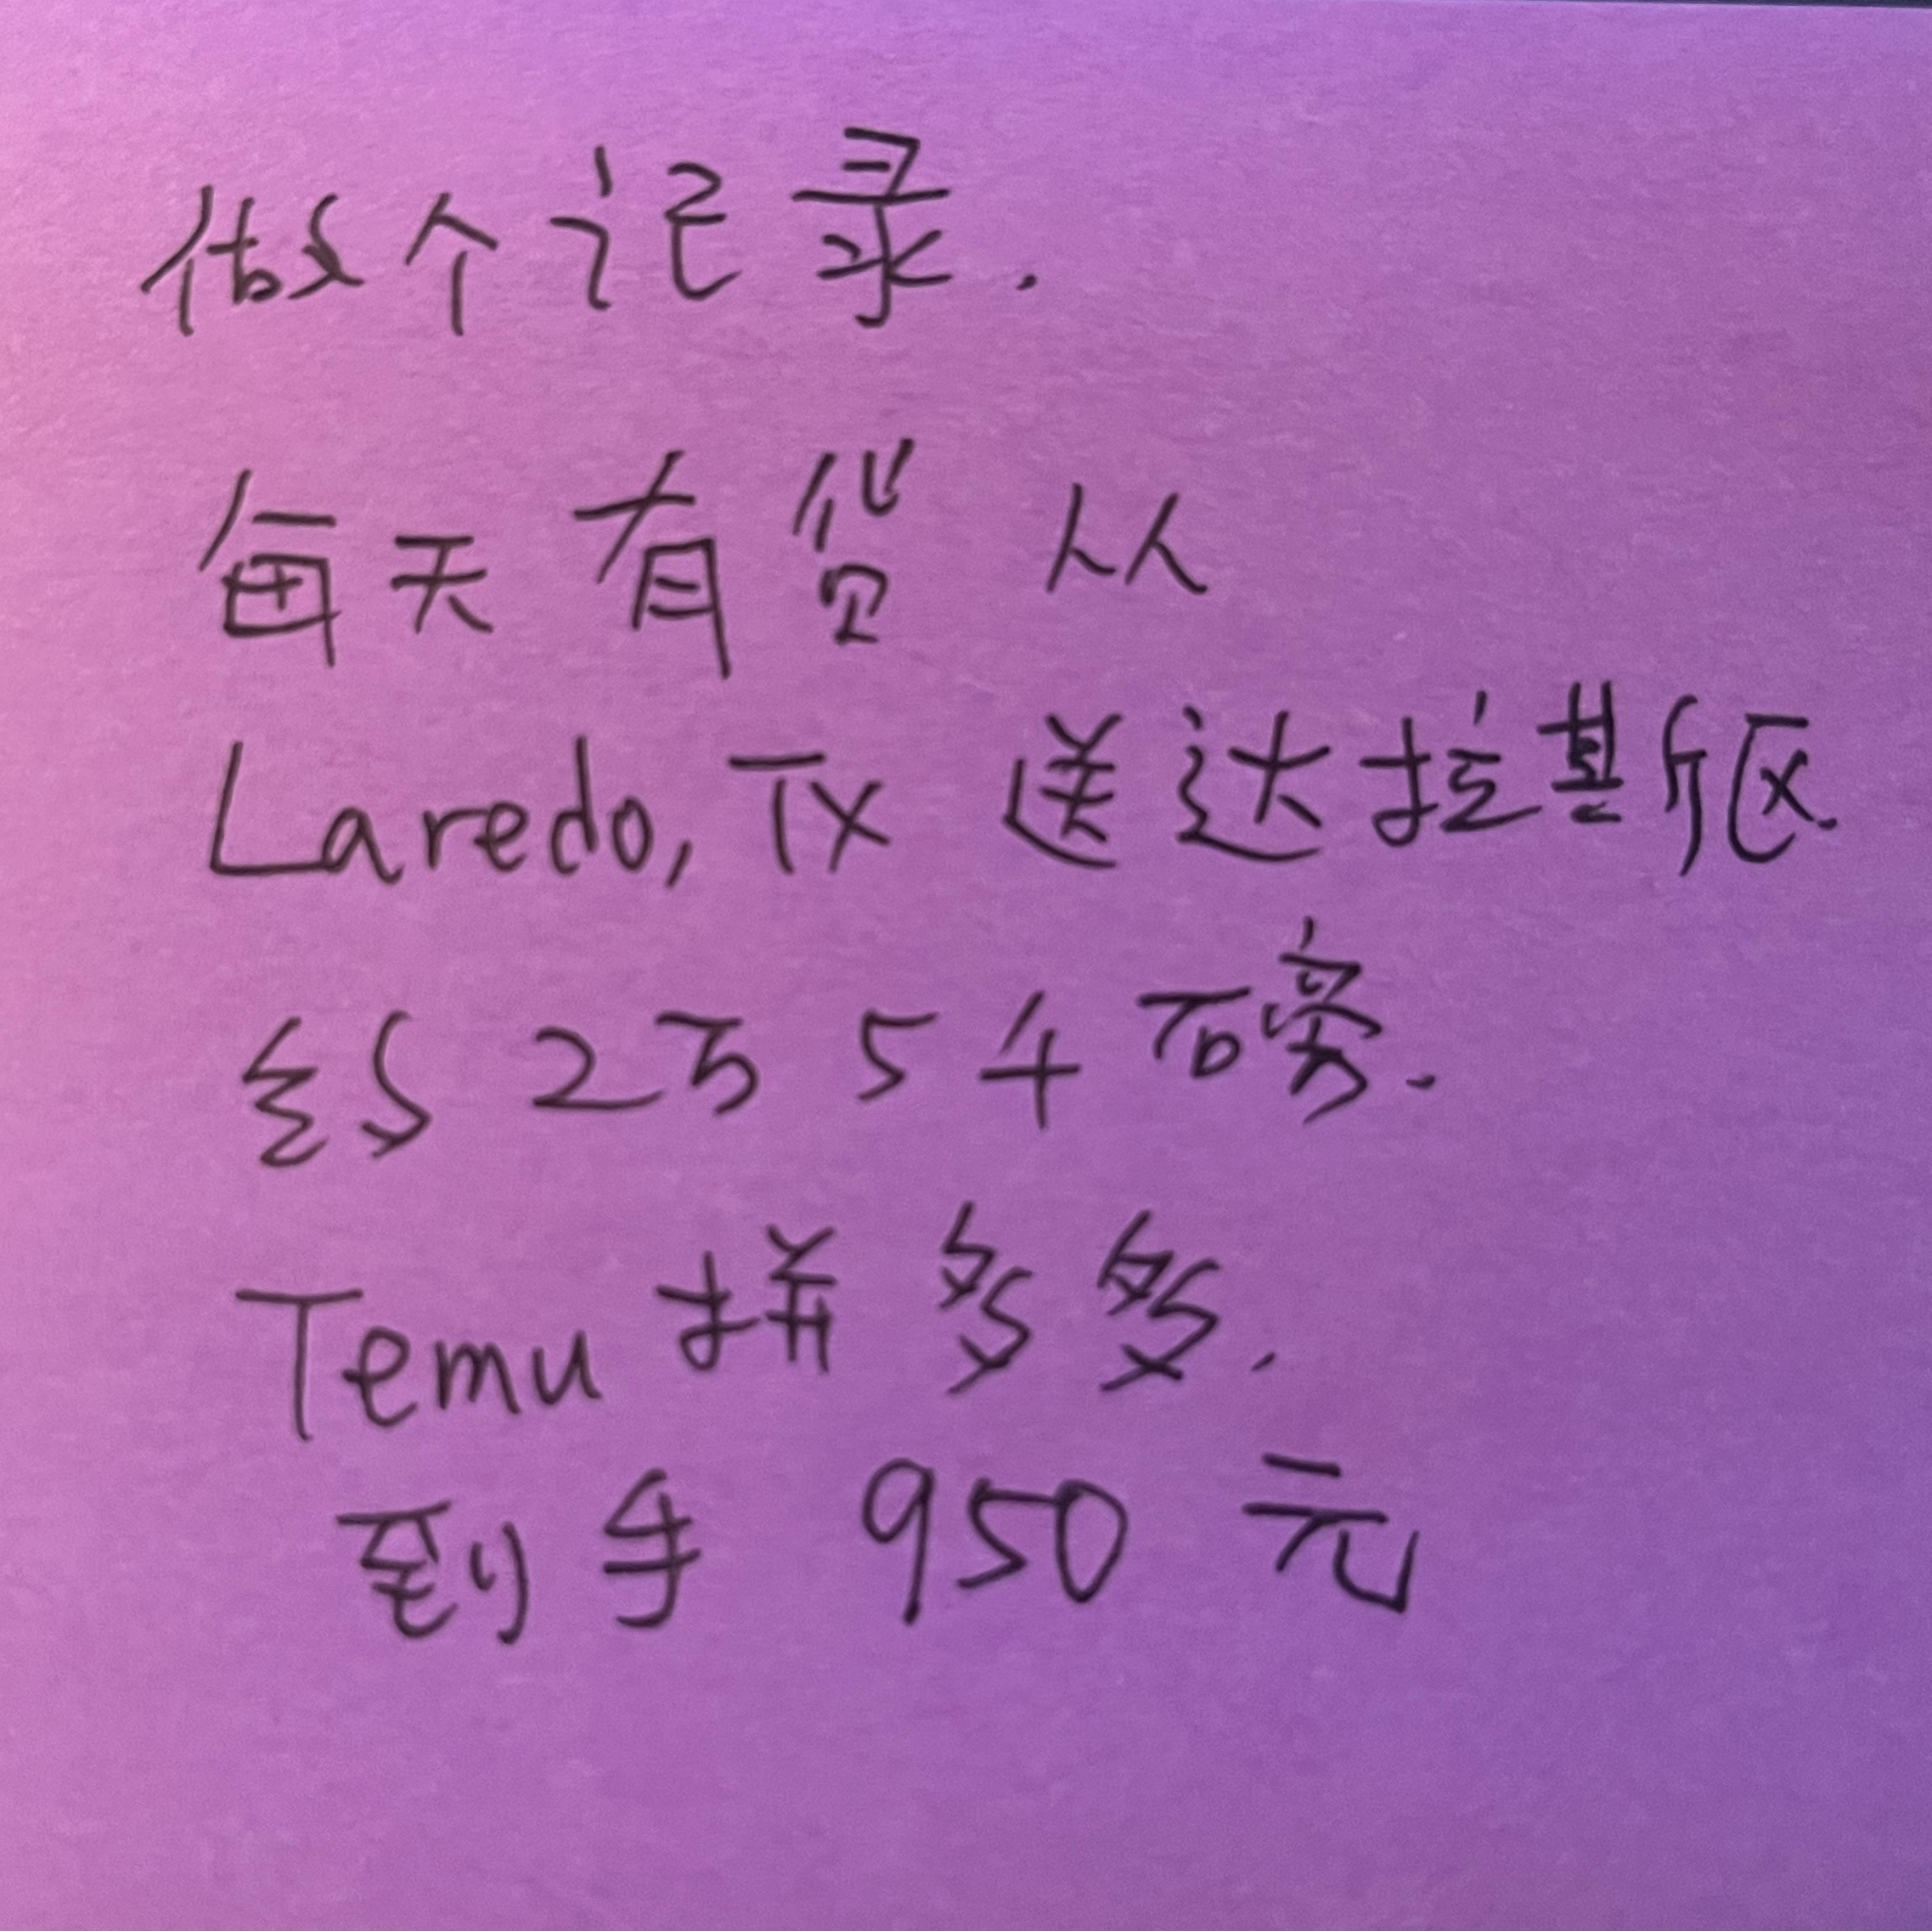 做个记录.
每天有货 从
Laredo, TX 送达拉斯区.
约 2万 5千 磅.
Temu 拼多多.
到手 950 元